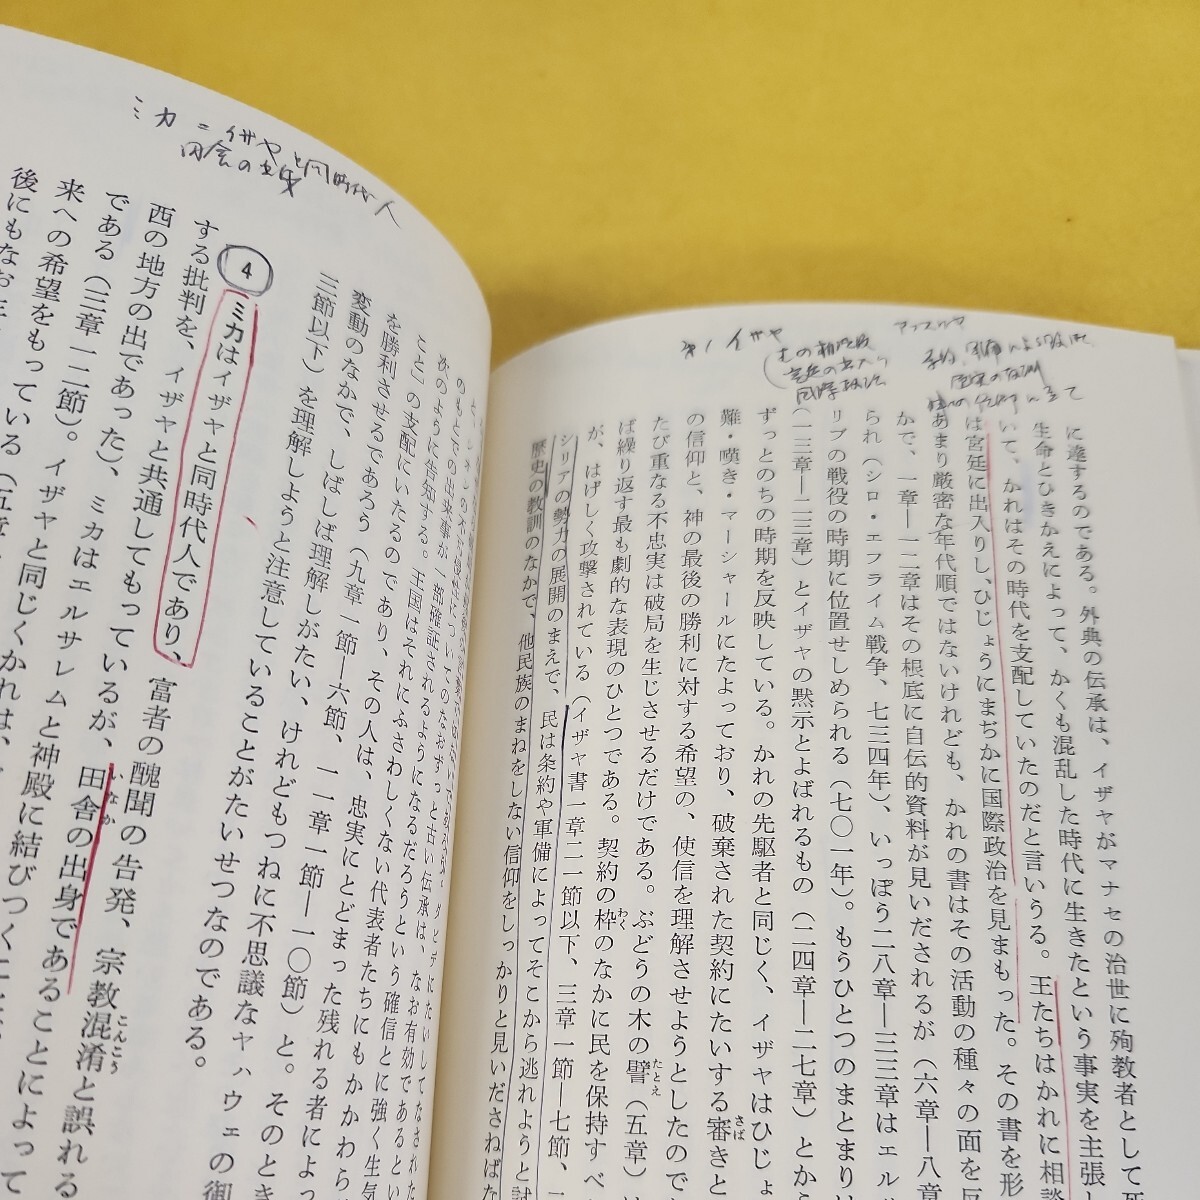 に達するのである。外典の伝承は、イザヤがマナセの治世に殉教者として死
生命とひきかえによって、かくも混乱した時代に生きたという事実を主張し
いて、かれはその時代を支配していたのだと言いうる。王たちはかれに相談
は宮廷に出入りし、ひじょうにまぢかに国際政治を見まもった。その書を形
あまり厳密な年代順ではないけれども、かれの書はその活動の種々の面を反
かで、一章―一二章はその根底に自伝的資料が見いだされるが（六章―八章
られ（シロ・エフライム戦争、七三四年）、いっぽう二八章―三三章はエル
リブの戦役の時期に位置せしめられる（七〇一年）。もうひとつのまとまり
（一三章―二三章）とイザヤの黙示とよばれるもの（二四章―二七章）とか
ずっとのちの時期を反映している。かれの先駆者と同じく、イザヤはひじょ
難・嘆き・マーシャールにたよっており、破棄された契約にたいする審き
の信仰と、神の最後の勝利に対する希望の、使信を理解させようとしたので
たび重なる不忠実は破局を生じさせるだけである。ぶどうの木の譬（五章）は
ば繰り返す最も劇的な表現のひとつである。契約の枠のなかに民を保持すべ
が、はげしく攻撃されている（イザヤ書一章二一節以下、三章一節―七節、
シリアの勢力の展開のまえで、民は条約や軍備によってそこから逃れようと試
歴史の教訓のなかで、他民族のまねをしない信仰をしっかりと見いださねばな
のもとでの出来事が一部確証されるようになるだろうという確信とに強く生気
次のように告知する。王国はそれにふさわしくない代表者たちにもかかわら
こと」の支配にいたるのであり、その人は、忠実にとどまった残れる者によっ
を勝利させるであろう（九章一節―六節、一一章一節―一〇節）と。そのとき
変動のなかで、しばしば理解しがたい、けれどもつねに不思議なヤハウェの御
三節以下）を理解しようと注意していることがたいせつなのである。
4 ミカはイザヤと同時代人であり、富者の醜聞の告発、宗教混淆と誤れる
する批判を、イザヤと共通してもっているが、田舎の出身であることによって
西の地方の出であった）、ミカはエルサレムと神殿に結びつく
である（三章一二節）。イザヤと同じくかれは、
来への希望をもっている（五章
後にもなお
ミカ＝イザヤと同時代人
田舎の出身
第1イザヤ
宮廷の出入り
国際政治